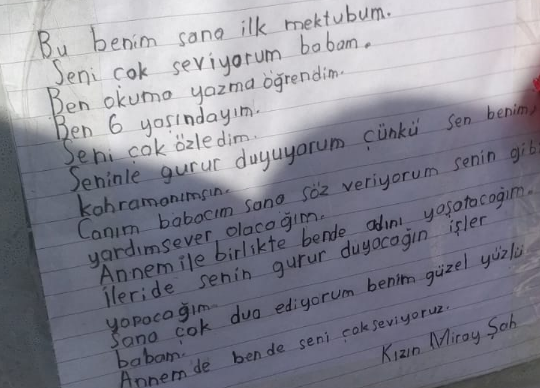 Bu benim sana ilk mektubum.
Seni çok seviyorum babam.
Ben okuma yazma öğrendim.
Ben 6 yaşındayım.
Seni çok özledim.
Seninle gurur duyuyorum çünkü sen benim
kahramanımsın.
Canım babacım sana söz veriyorum senin gibi
yardımsever olacağım.
Annem ile birlikte bende adını yaşatacağım.
İleride senin gurur duyacağın işler
yapacağım.
Sana çok dua ediyorum benim güzel yüzlü
babam.
Annem de bende seni çok seviyoruz.
Kızın Miray Şah